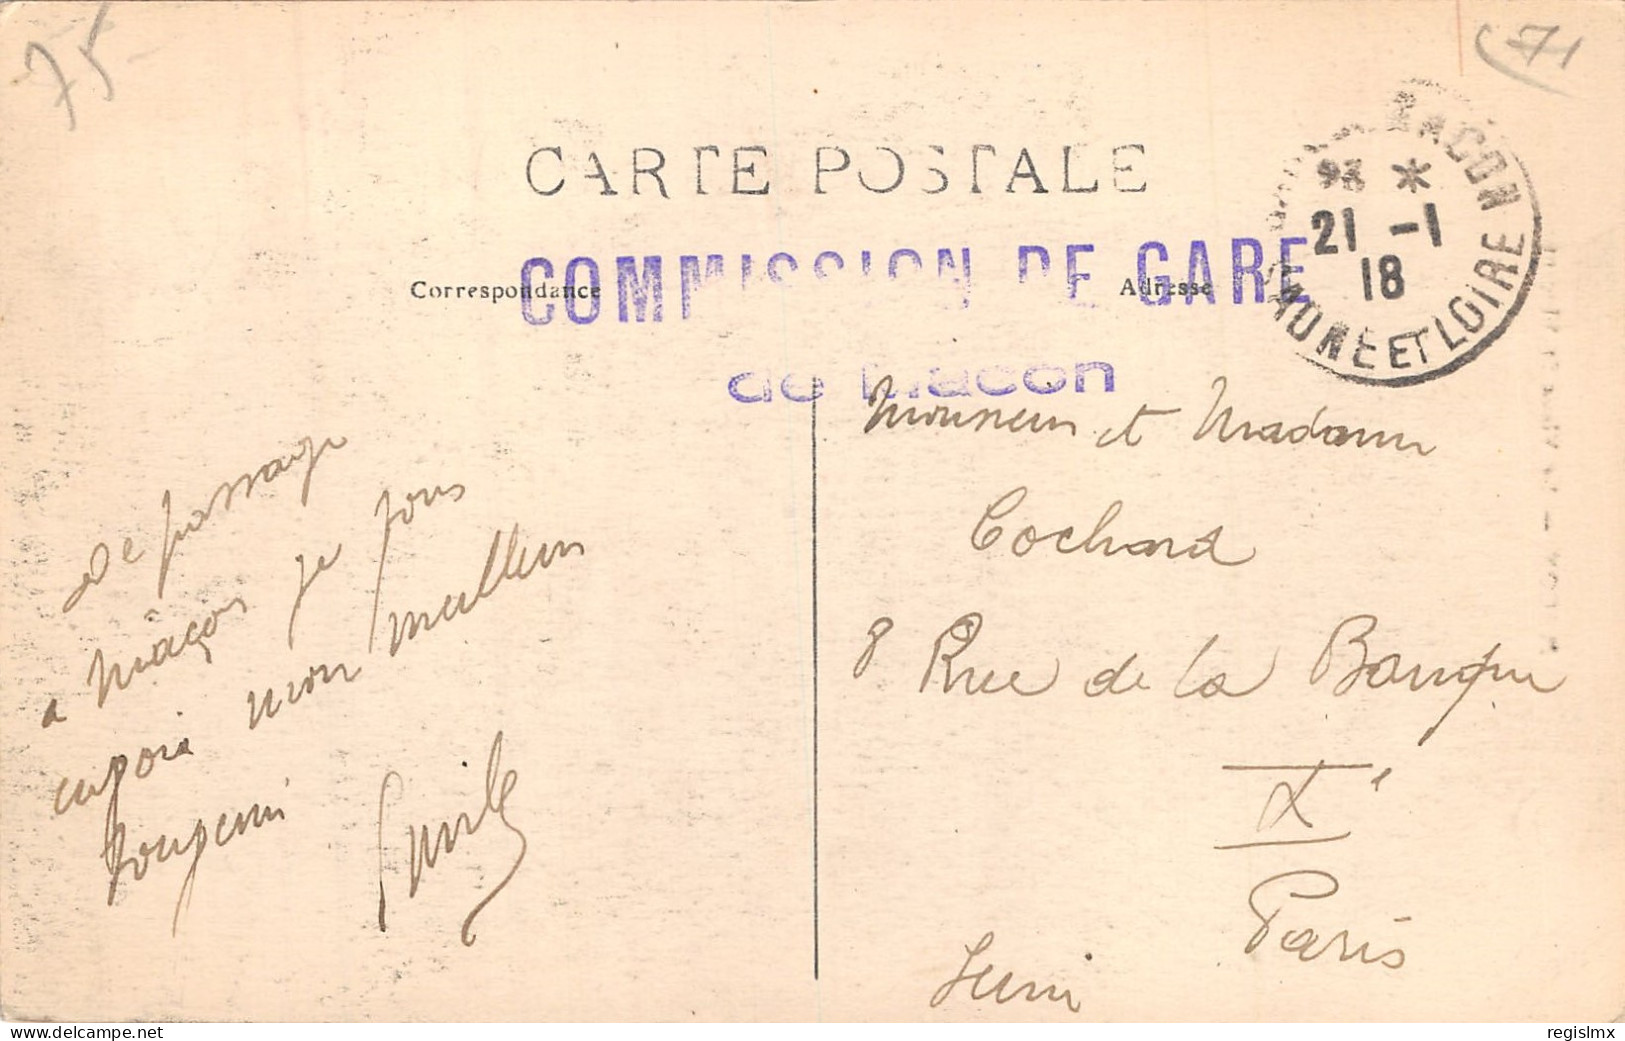 75
71
CARTE POSTALE
MACON
93 *
21 -1
18
SAONE ET LOIRE
COMMISSION DE GARE
de Macon
Correspondance
Adresse
De passage
a Mâcon je vous
envoie mon meilleur
souvenir
Emile
Monsieur et Madame
Cochard
8 Rue de la Banque
Paris